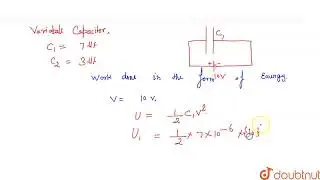 Variable Capacitor,
C₁ = 7 μf
C₂ = 3 μf
C₁
10V
Work done in the form of Energy
V = 10 v.
U = 1/2 C₁V²
U₁ = 1/2 × 7 × 10⁻⁶ ×
doubtnut